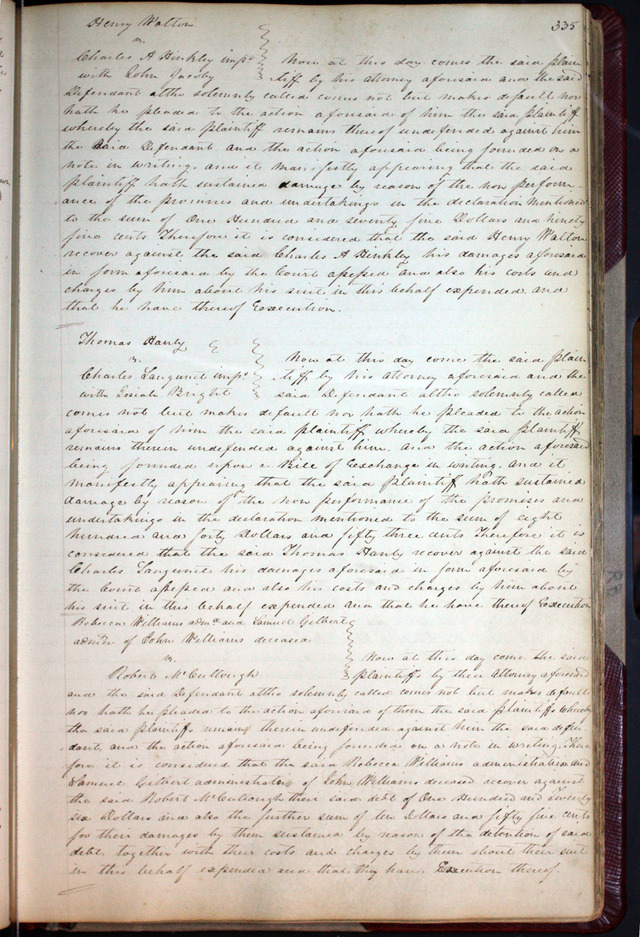 335
Henry Walton
vs.
Charles A Hinkley imp.d Now at this day comes the said plain
with John Jacoby tiff by his attorney aforesaid and the said
Defendant altho solemnly called comes not but makes default nor
hath he pleaded to the action aforesaid of him the said plaintiff
whereby the said plaintiff remains thereof undefended against him
the said Defendant and the action aforesaid being founded on a
note in writing. and it manifestly appearing that the said
plaintiff hath sustained damage by reason of the non perform-
ance of the promises and undertakings in the declaration mentioned
to the sum of One Hundred and seventy five Dollars and ninety
five cents Therefore it is considered that the said Henry Walton
recover against the said Charles A Hinkley his damages aforesaid
in form aforesaid by the Court assessed and also his costs and
charges by him about his suit in this behalf expended and
that he have thereof Execution.
Thomas Hanly
vs.
Charles Languil imp.d Now at this day comes the said plain
with Josiah Bright tiff by his attorney aforesaid and the
said Defendant altho solemnly called
comes not but makes default nor hath he pleaded to the action
aforesaid of him the said plaintiff, whereby the said plaintiff
remains therein undefended against him. and the action aforesaid
being founded upon a Bill of Exchange in writing. and it
manifestly appearing that the said plaintiff hath sustained
damage by reason of the non performance of the promises and
undertakings in the declaration mentioned to the sum of eight
hundred and forty Dollars and fifty three cents Therefore it is
considered that the said Thomas Hanly recover against the said
Charles Languil his damages aforesaid in form aforesaid by
the Court assessed and also his costs and charges by him about
his suit in this behalf expended and that he have thereof Execution
Rebecca Williams adm.x and Samuel Gilbert
of John Williams deceased
vs.
Now at this day come the said
Robert McCullough plaintiffs by their attorney aforesaid
and the said Defendant altho solemnly called comes not but makes default
nor hath he pleaded to the action aforesaid of them the said plaintiffs whereby
the said plaintiffs remain therein undefended against him the said defen-
dant, and the action aforesaid being founded on a note in writing. There
fore it is considered that the said Rebecca Williams administratrix and
Samuel Gilbert administrator of John Williams deceased recover against
the said Robert McCullough their said debt of One Hundred and Twenty
six Dollars and also the further sum of ten Dollars and fifty five cents
for their damages by them sustained by reason of the detention of said
debt, together with their costs and charges by them about their suit
in this behalf expended and that they have Execution thereof.